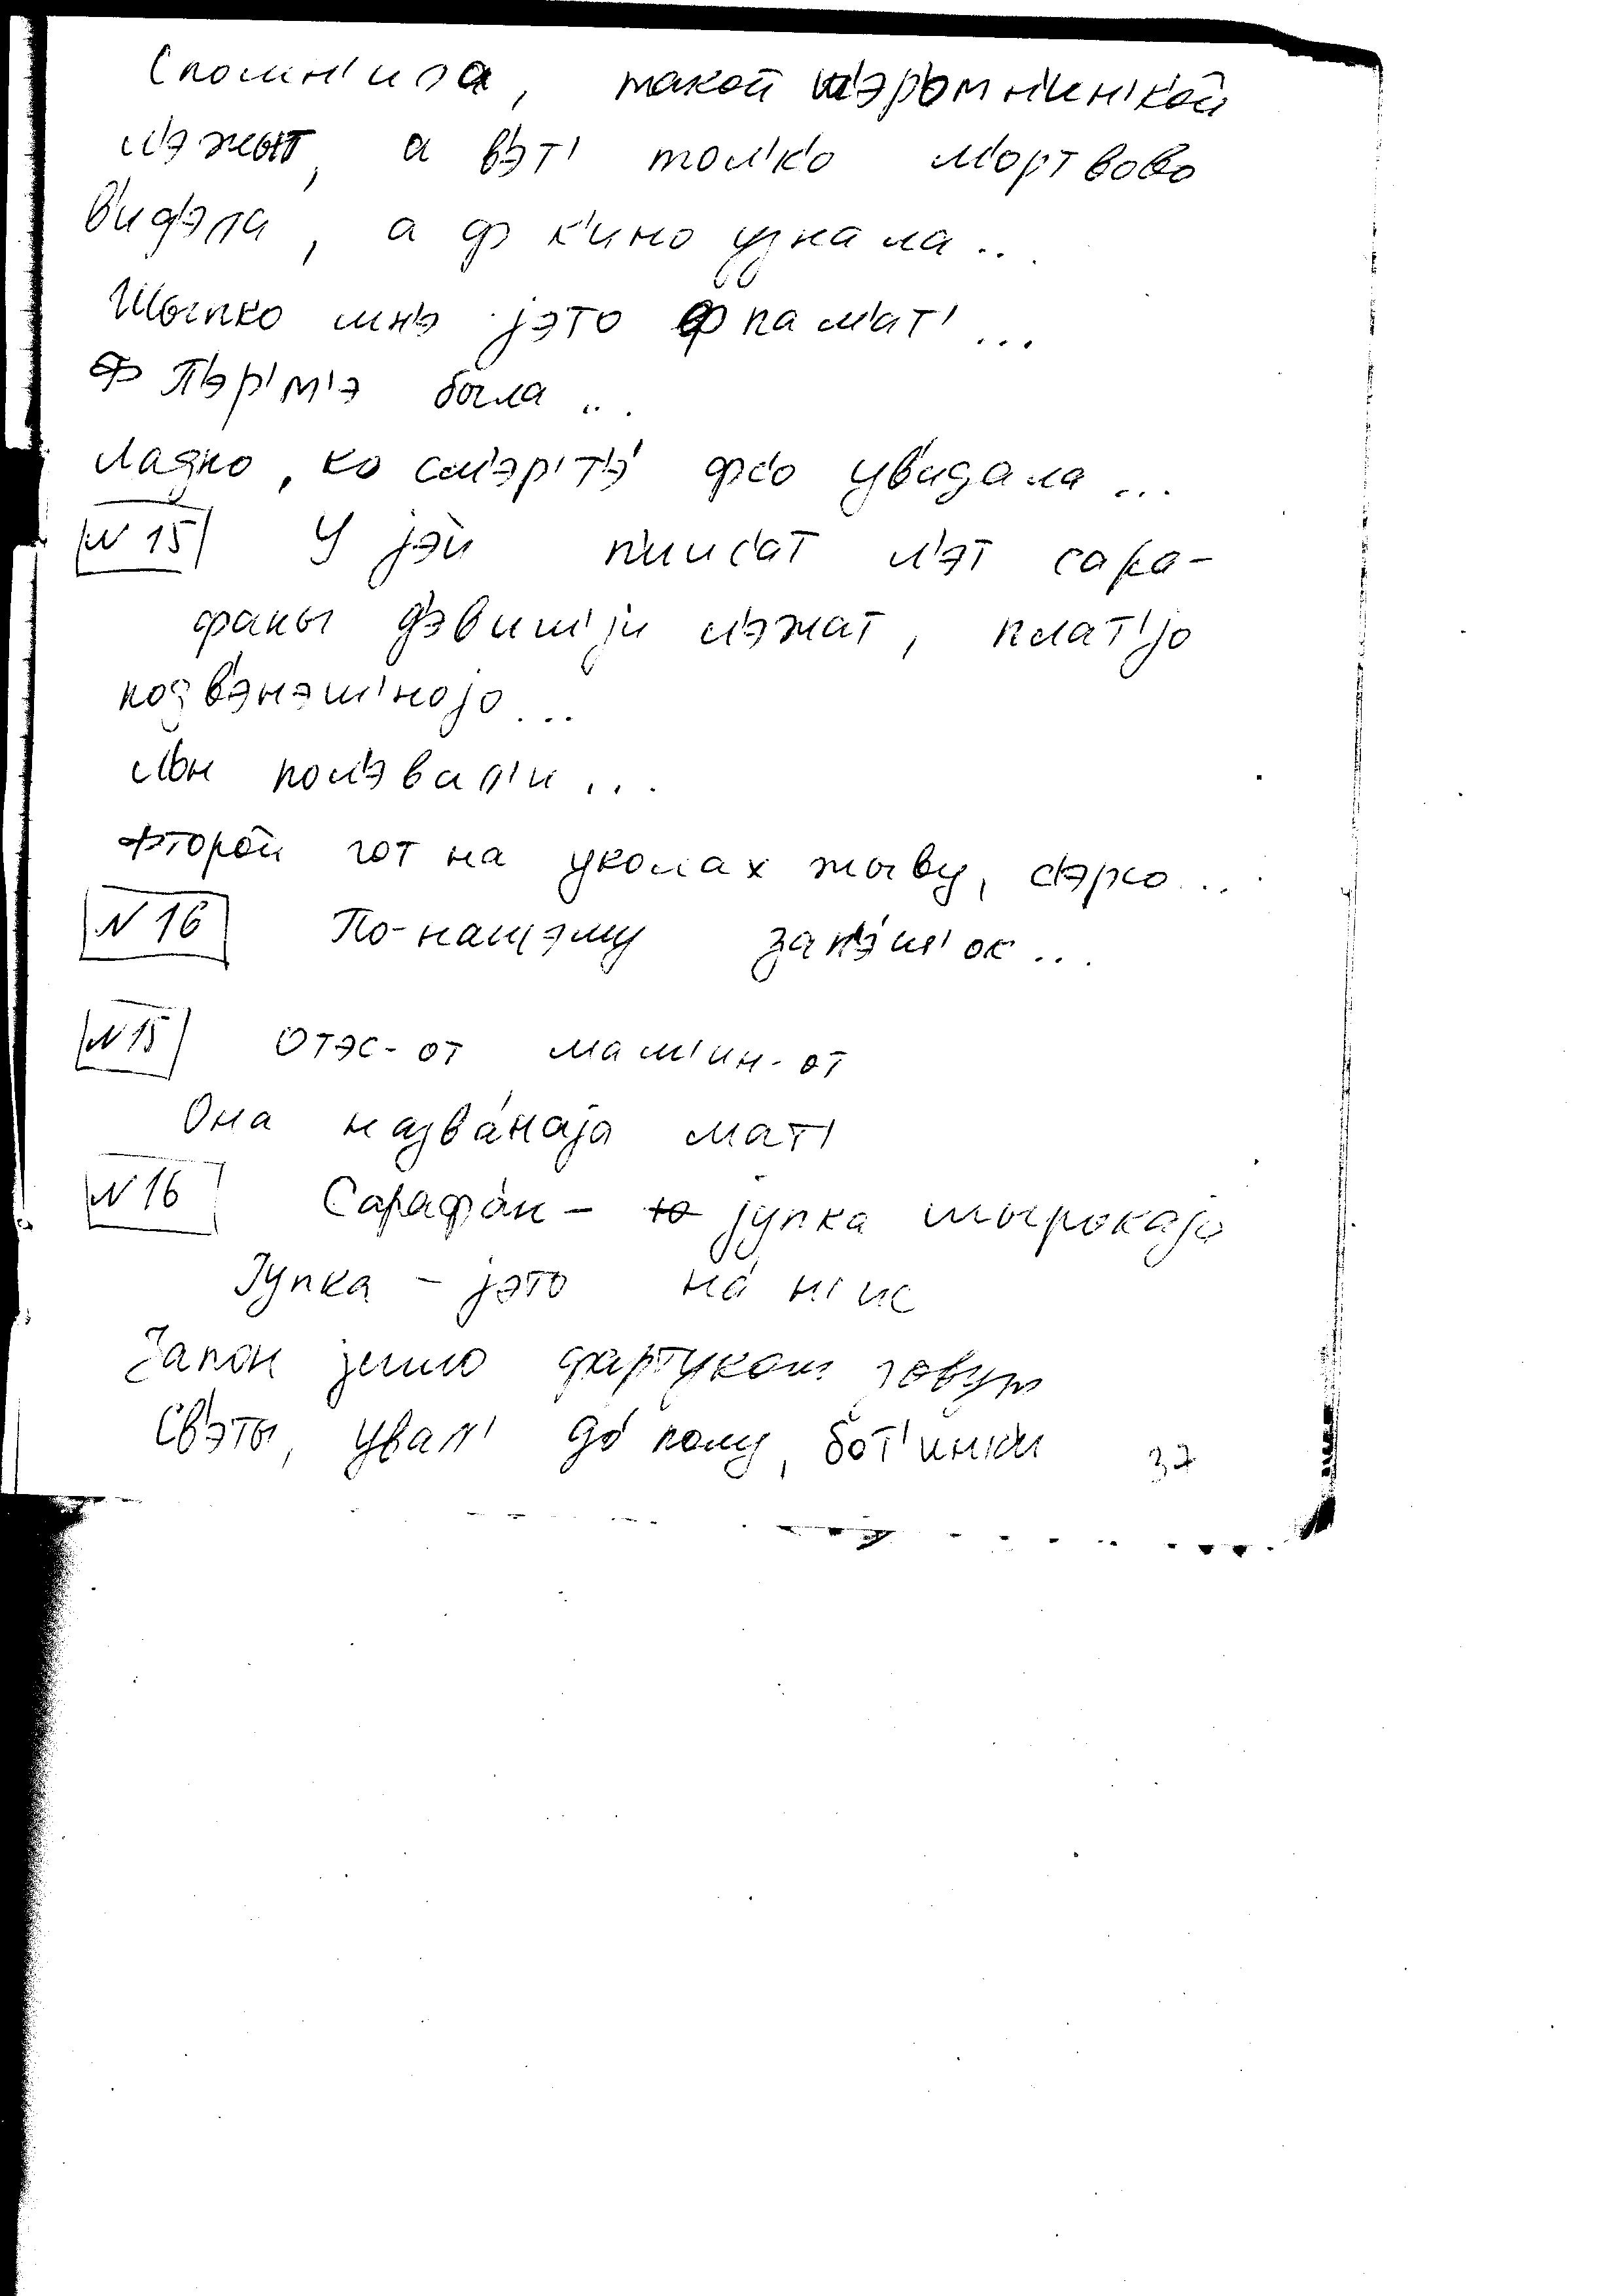 Спомн'ила, такой ш'эромн'ин'к'ой
л'эжыт, а в'эт' тол'ко м'ортвово
в'ид'эла, а ф к'ино узнала...
Шыпко мн'э јэто ф памат'...
Ф П'эр'м'э была...
Ладно, ко см'эр'т'э фс'о ув'идала...
№ 15 У јэй п'иис'ат л'эт сара-
фаны д'эвиш'ји л'эжат, плат'јо
подв'энэш'нојо...
Л'он пол'эвал'и...
Фторой гот на уколах жыву, с'эрсо...
№ 16 По-нашэму зап'эш'ок...
№ 15 Отэс-от маш'ин-от
Она назва́наја мат'
№ 16 Сарафа́н – јупка шырокаја
Јупка – јэто на́ н'ис
Запон јишо фартуком зовут
Св'эты, увал' до́ полу, бот'инк'и
37